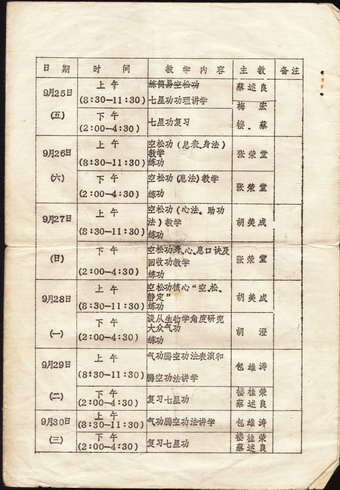 日期 时间 教学内容 主教 备注
9月25日 上午 练简易空松功 蔡述良
(8:30—11:30) 七星功功理讲学
(五) 下午 七星功复习 梅宏
(2:00—4:30) 楼、蔡
9月26日 上午 空松功(总表、身法)
教学 张荣堂
(8:30—11:30) 练功
(六) 下午 空松功(息法)教学 张荣堂
(2:00—4:30) 练功
9月27日 上午 空松功(心法、助功
法)教学 胡美成
(8:30—11:30) 练功
(日) 下午 空松功身、心、息口诀及
回收功教学 张荣堂
(2:00—4:30) 练功
9月28日 上午 空松功核心“空、松、
静定” 胡美成
(8:30—11:30) 练功
(一) 下午 谈从生物学角度研究
大众气功 胡澄
(2:00—4:30) 练功
9月29日 上午 气功腾空功法表演和
(8:30—11:30) 腾空功法讲学 包雄涛
(二) 下午 复习七星功 楼桂荣
(2:00—4:30) 蔡述良
9月30日 上午 气功腾空功法讲学 包雄涛
(8:30—11:30)
(三) 下午 复习七星功 楼桂荣
(2:00—4:30) 蔡述良